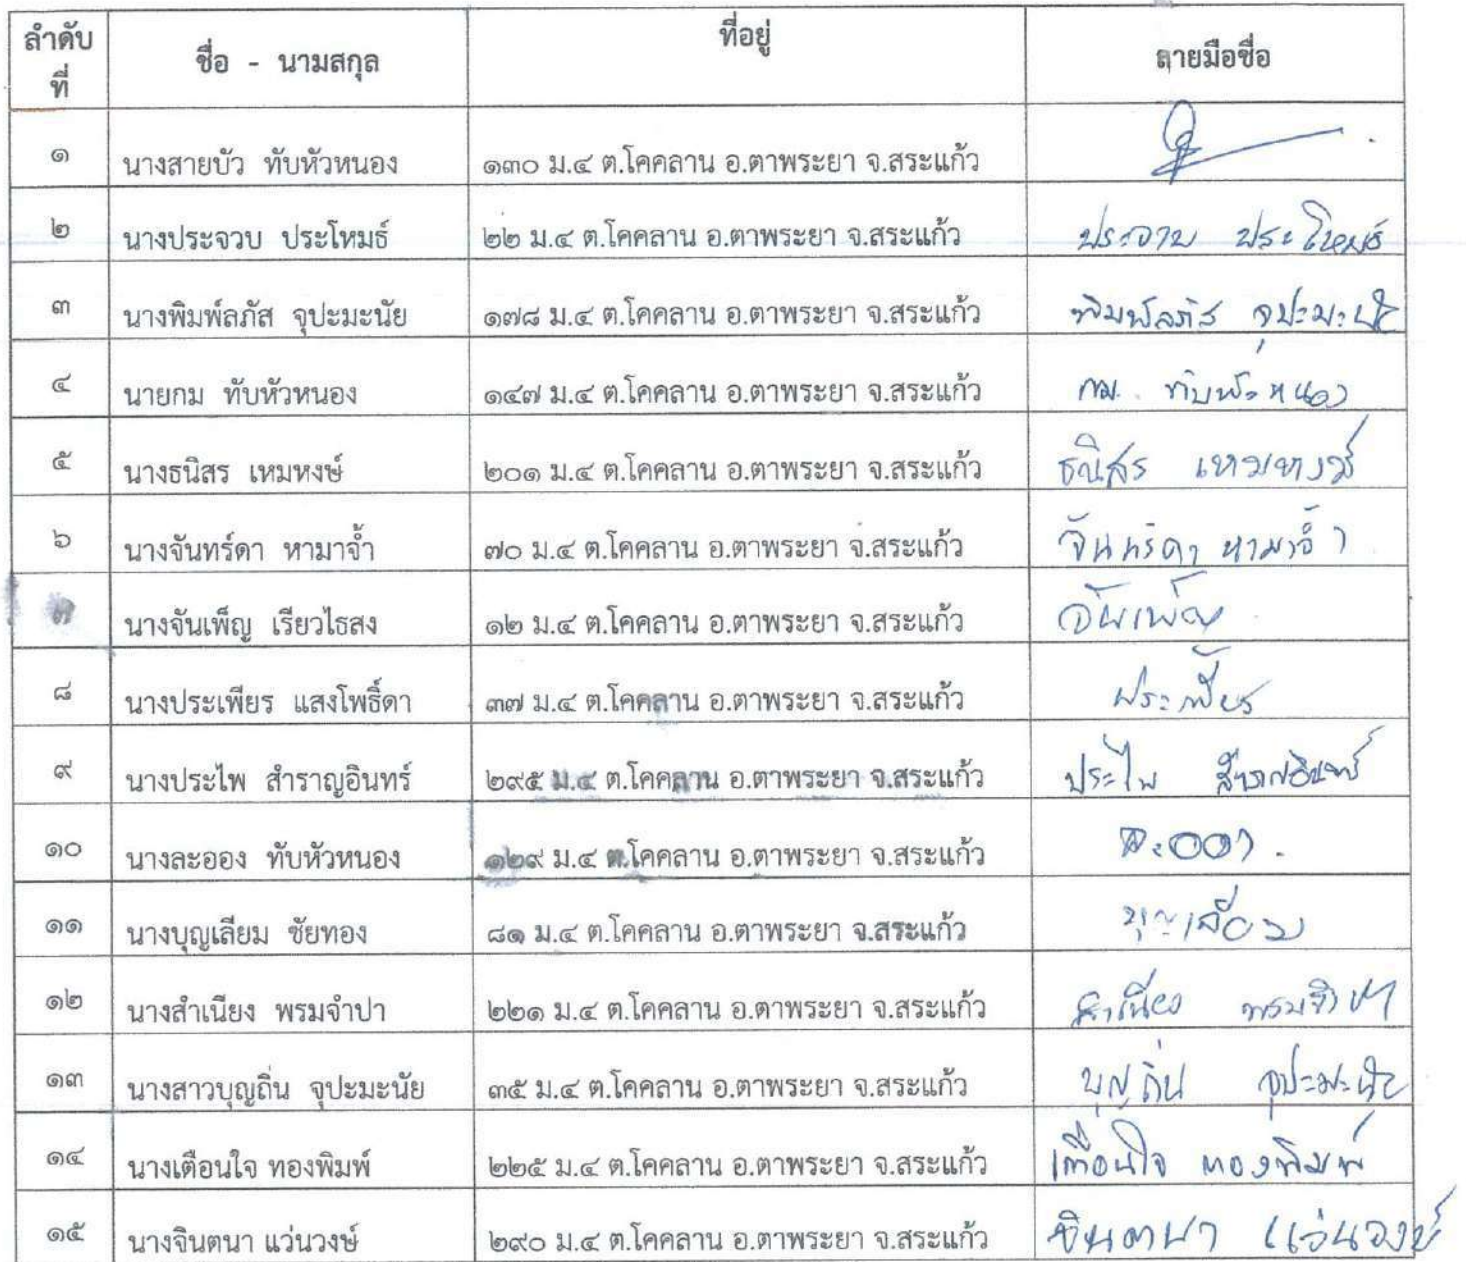 ลำดับที่ ชื่อ - นามสกุล ที่อยู่ ลายมือชื่อ
๑ นางสายบัว ทับหัวหนอง ๑๓๐ ม.๔ ต.โคคลาน อ.ตาพระยา จ.สระแก้ว
๒ นางประจวบ ประโหมธ์ ๒๒ ม.๔ ต.โคคลาน อ.ตาพระยา จ.สระแก้ว ประจวบ ประโหมธ์
๓ นางพิมพ์ลภัส จุปะมะนัย ๑๗๘ ม.๔ ต.โคคลาน อ.ตาพระยา จ.สระแก้ว พิมพ์ลภัส จุปะมะนัย
๔ นายกม ทับหัวหนอง ๑๔๗ ม.๔ ต.โคคลาน อ.ตาพระยา จ.สระแก้ว กม ทับหัวหนอง
๕ นางธนิสร เหมหงษ์ ๒๐๑ ม.๔ ต.โคคลาน อ.ตาพระยา จ.สระแก้ว ธนิสร เหมหงษ์
๖ นางจันทร์ดา หามาจ้ำ ๗๐ ม.๔ ต.โคคลาน อ.ตาพระยา จ.สระแก้ว จันทร์ดา หามาจ้ำ
๗ นางจันเพ็ญ เรียวไธสง ๑๒ ม.๔ ต.โคคลาน อ.ตาพระยา จ.สระแก้ว จันเพ็ญ
๘ นางประเพียร แสงโพธิ์ดา ๓๗ ม.๔ ต.โคคลาน อ.ตาพระยา จ.สระแก้ว ประเพียร
๙ นางประไพ สำราญอินทร์ ๒๙๕ ม.๔ ต.โคคลาน อ.ตาพระยา จ.สระแก้ว ประไพ สำราญอินทร์
๑๐ นางละออง ทับหัวหนอง ๑๒๙ ม.๔ ต.โคคลาน อ.ตาพระยา จ.สระแก้ว ละออง
๑๑ นางบุญเลียม ชัยทอง ๘๑ ม.๔ ต.โคคลาน อ.ตาพระยา จ.สระแก้ว บุญเลียม
๑๒ นางสำเนียง พรมจำปา ๒๒๑ ม.๔ ต.โคคลาน อ.ตาพระยา จ.สระแก้ว สำเนียง พรมจำปา
๑๓ นางสาวบุญถิ่น จุปะมะนัย ๓๕ ม.๔ ต.โคคลาน อ.ตาพระยา จ.สระแก้ว บุญถิ่น จุปะมะนัย
๑๔ นางเตือนใจ ทองพิมพ์ ๒๒๕ ม.๔ ต.โคคลาน อ.ตาพระยา จ.สระแก้ว เตือนใจ ทองพิมพ์
๑๕ นางจินตนา แว่นวงษ์ ๒๙๐ ม.๔ ต.โคคลาน อ.ตาพระยา จ.สระแก้ว จินตนา แว่นวงษ์